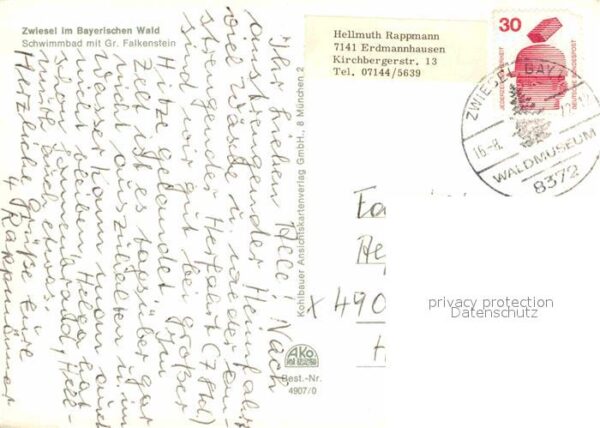 Zwiesel im Bayerischen Wald
Schwimmbad mit Gr. Falkenstein
Hellmuth Rappmann
7141 Erdmannhausen
Kirchbergerstr. 13
Tel. 07144/5639
30
DEUTSCHE BUNDESPOST
JEDERZEIT SICHERHEIT
ZWIESEL BAY
16.-8.
WALDMUSEUM
8372
Ihr Lieben Alle! Nach
anstrengender Heimfahrt
viel Wäsche u. wieder an-
strengender Herfahrt (7 Std)
sind wir gut bei großer
Hitze gelandet. Im
Zelt ist es tagsüber gar
nicht auszuhalten u. im
Wasser kann man auch
nicht bleiben. Helga hat
schon Sonnenbrand,
auch etwas.
Herzliche Grüße Eure
Rappmänner
Kohlbauer Ansichtskartenverlag GmbH., 8 München 2
AKo
Best.-Nr.
4907/0
Fa
x 490
H
privacy protection
Datenschutz